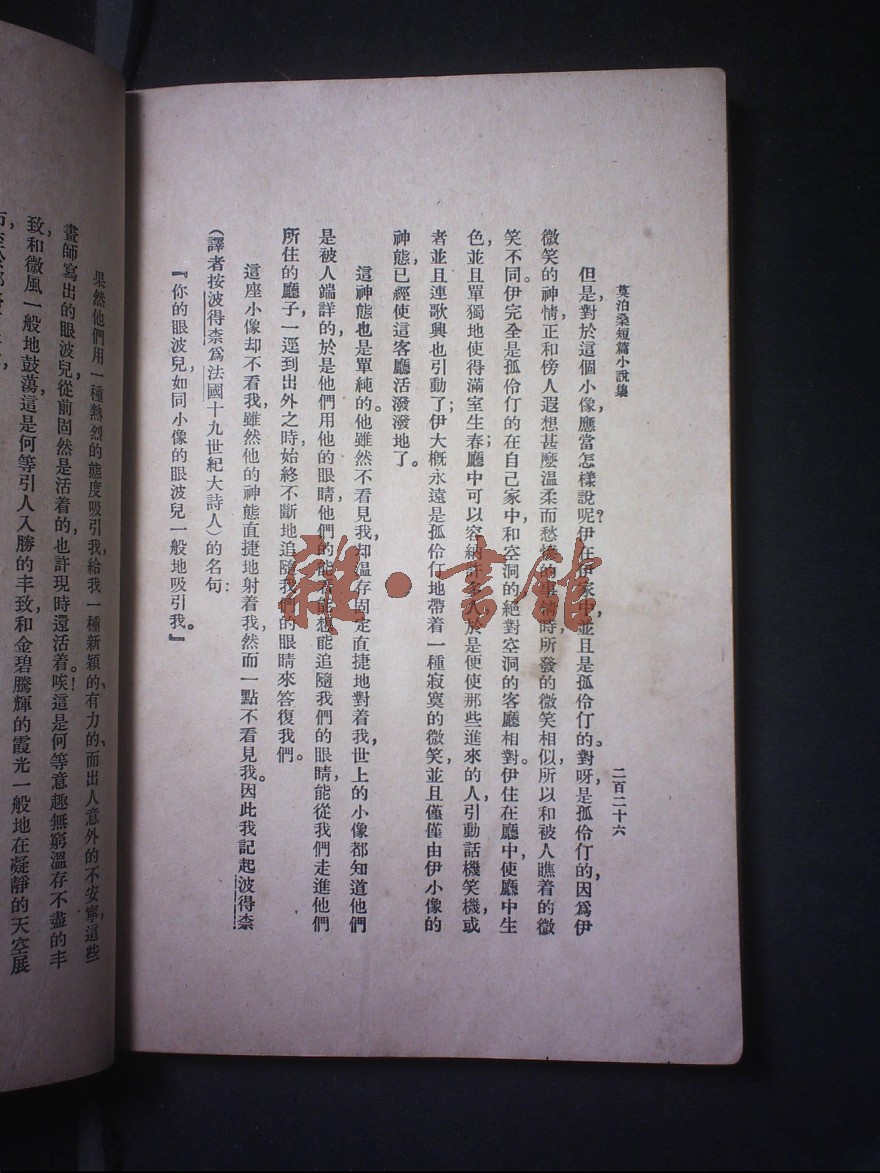 莫泊桑短篇小說集
二百二十六
但是對於這個小像應當怎樣說呢？伊在伊家中，並且是孤伶仃的。對呀，是孤伶仃的，因爲伊
微笑的神情正和傍人遐想甚麽温柔而愁慘的事情時所發的微笑相似，所以和被人瞧着的微
笑不同。伊完全是孤伶仃的在自己家中和空洞的絕對空洞的客廳相對。伊住在廳中，使廳中生
色，並且單獨地使得滿室生春；廳中可以容納許多人，於是便使那些進來的人，引動話機笑機，或
者並且連歌興也引動了；伊大概永遠是孤伶仃地帶着一種寂寞的微笑，並且僅僅由伊小像的
神態，已經使這客廳活潑潑地了。
這神態也是單純的。他雖然不看見我，却温存固定直捷地對着我，世上的小像都知道他們
是被人端詳的，於是他們用他的眼睛，他們的能看能想能追隨我們的眼睛，能從我們走進他們
所住的廳子，一逕到出外之時，始終不斷地追隨我們的眼睛來答復我們。
這座小像却不看我，雖然他的神態直捷地射着我，然而一點不看見我。因此我記起波得柰
（譯者按波得柰爲法國十九世紀大詩人）的名句：
『你的眼波兒，如同小像的眼波兒一般地吸引我。』
果然他們用一種熱烈的態度吸引我，給我一種新穎的、有力的、而出人意外的不安寧，這些
畫師寫出的眼波兒，從前固然是活着的，也許現時還活着。唉！這是何等意趣無窮溫存不盡的丰
致，和微風一般地鼓蕩，這是何等引人入勝的丰致，和金碧騰輝的霞光一般地在凝靜的天空展
雜·書館